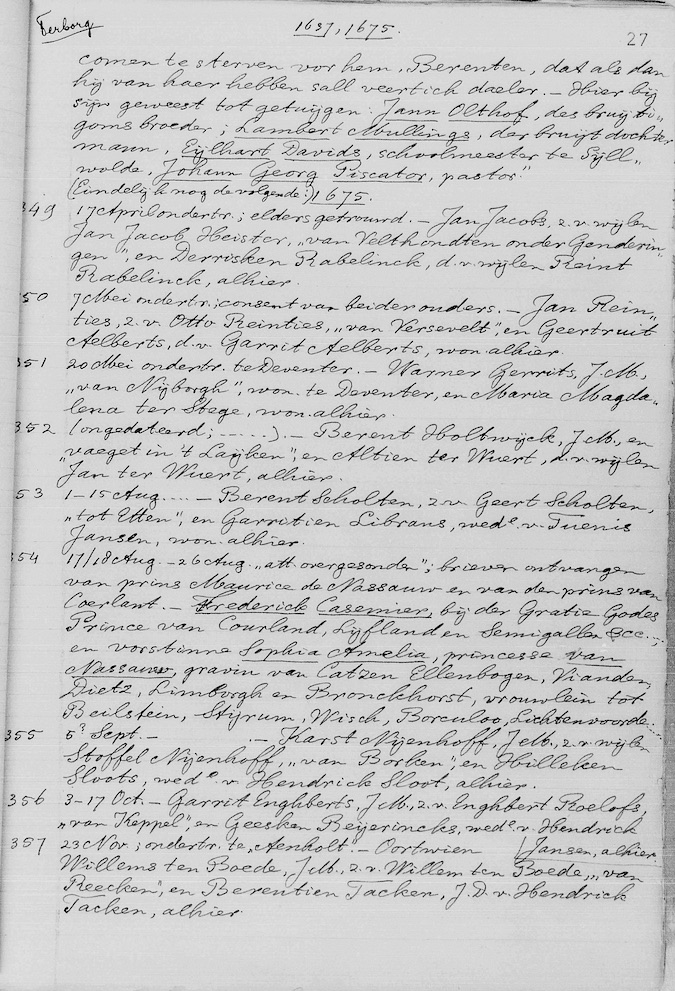 Terborg
1637, 1675.
27
comen te sterven vor hem, Berenten, dat als dan
hij van haer hebben sall veertich daeler. – Hier bij
sijn geweest tot getuijgen: Jann Olthof, des bruijti„
goms broeder; Lambert Mullings, der bruijt dochter
mann, Eijlhart Davids, schoolmeester te Syll„
wolde, Johann Georg Piscator, pastor."
(Eindelijk nog de volgende:) 1675.
349 17 April ondertr.; elders getrouwd. – Jan Jacobs, z.v. wijlen
Jan Jacob Heister, „van Velthondten onder Genderin„
gen", en Derrisken Rabelinck, d.v. wijlen Reint
Rabelinck, alhier.
50 7 Mei ondertr.; consent van beider ouders. – Jan Rein„
ties, z.v. Otto Reinties, „van Versevelt", en Geertruit
Aelberts, d.v. Garrit Aelberts, won. alhier.
351 20 Mei ondertr. te Deventer. – Warner Gerrits, J.M.,
„van Nijborgh", won. te Deventer, en Maria Magda„
lena ter Stege, won. alhier.
352 (ongedateerd; .....). – Berent Holtwijck, J.M., en
„vaeget in 't Laijken", en Altien ter Wuert, d.v. wijlen
Jan ter Wuert, alhier.
53 1–15 Aug. .... – Berent Scholten, z.v. Geert Scholten,
„tot Etten", en Garritien Librans, wed.e v. Tuenis
Jansen, won. alhier.
354 17/18 Aug. – 26 Aug. „att. overgesonden"; brieven ontvangen
van prins Maurice de Nassauw en van den prins van
Coerlant. – Frederick Casemier, bij der Gratie Godes
Prince van Courland, Lijfland en Semigallen &cc...;
en vorstinne Sophia Amelia, princesse van
Nassauw, gravin van Catzen Ellenbogen, Vianden,
Dietz, Limborgh en Bronckhorst, vrouwlein tot
Beilstein, Stijrum, Wisch, Borculoo, Lichtenvoorde....
355 5 Sept. – – Karst Nijenhoff, J.M., z.v. wijlen
Stoffel Nijenhoff, „van Borken", en Hilleken
Sloots, wed.e v. Hendrick Sloot, alhier.
356 3–17 Oct. – Garrit Enghberts, J.M., z.v. Enghbert Roelofs,
„van Keppel", en Geesken Beijerincks, wed.e v. Hendrick
Jansen, alhier.
357 23 Nov.; ondertr. te „Aenholt". – Oortwien
Willems ten Boede, J.M., z.v. Willem ten Boede, „van
Reecken", en Berentien Tacken, J.D. v. Hendrick
Tacken, alhier.